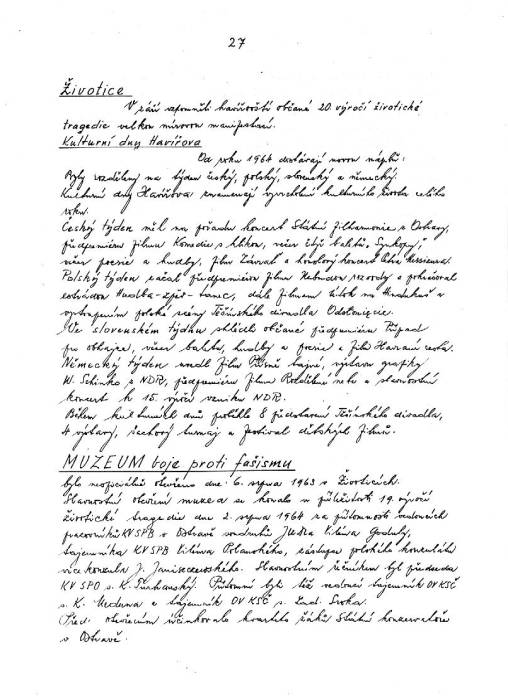 27
Životice
V září vzpomněli havířovští občané 20. výročí životické
tragedie velkou mírovou manifestací.
Kulturní dny Havířova
Od roku 1964 dostávají novou náplň:
Byly rozděleny na týden český, polský, slovenský a německý.
Kulturní dny Havířova znamenají vyvrcholení kulturního života celého
roku.
Český týden měl na pořadu koncert Státní filharmonie z Ostravy,
předpremiéru filmu Komedie s klikou, večer
večer poesie a hudby, film Závrať a koncert
Polský týden začal předpremiérou filmu a pokračoval
estrádou Hudba-zpěv-tanec, dále filmem Útok na
vystoupením polské scény Těšínského divadla
Ve slovenském týdnu shlédli občané předpremiéru Případ
pro obhájce, večer baletu, hudby a poesie a film Havraní cesta.
Německý týden uvedl film Přísně tajné, výstavu grafiky
W. z NDR, předpremiéru filmu Rozdělené nebe a slavnostní
koncert k 15. výročí vzniku NDR.
Během kulturních dnů proběhlo 8 představení Těšínského divadla,
4 výstavy, šachový turnaj a Festival dětských filmů.
MUZEUM boje proti fašismu
bylo neoficiálně otevřeno dne 6. srpna 1963 v Životicích.
Slavnostní otevření muzea se konalo u příležitosti 19. výročí
životické tragedie dne 2. srpna 1964 za přítomnosti vedoucích
pracovníků KV SPB v Ostravě soudruhů
tajemníka KV SPB zástupce polského konzulátu
vicekonzula J. Slavnostním řečníkem byl předseda
KV SPO s. K. Přítomni byli též vedoucí tajemník OV KSČ
s. K. a tajemník OV KSČ s. Lud.
Před otevřením účinkovalo kvarteto žáků Státní konzervatoře
v Ostravě.